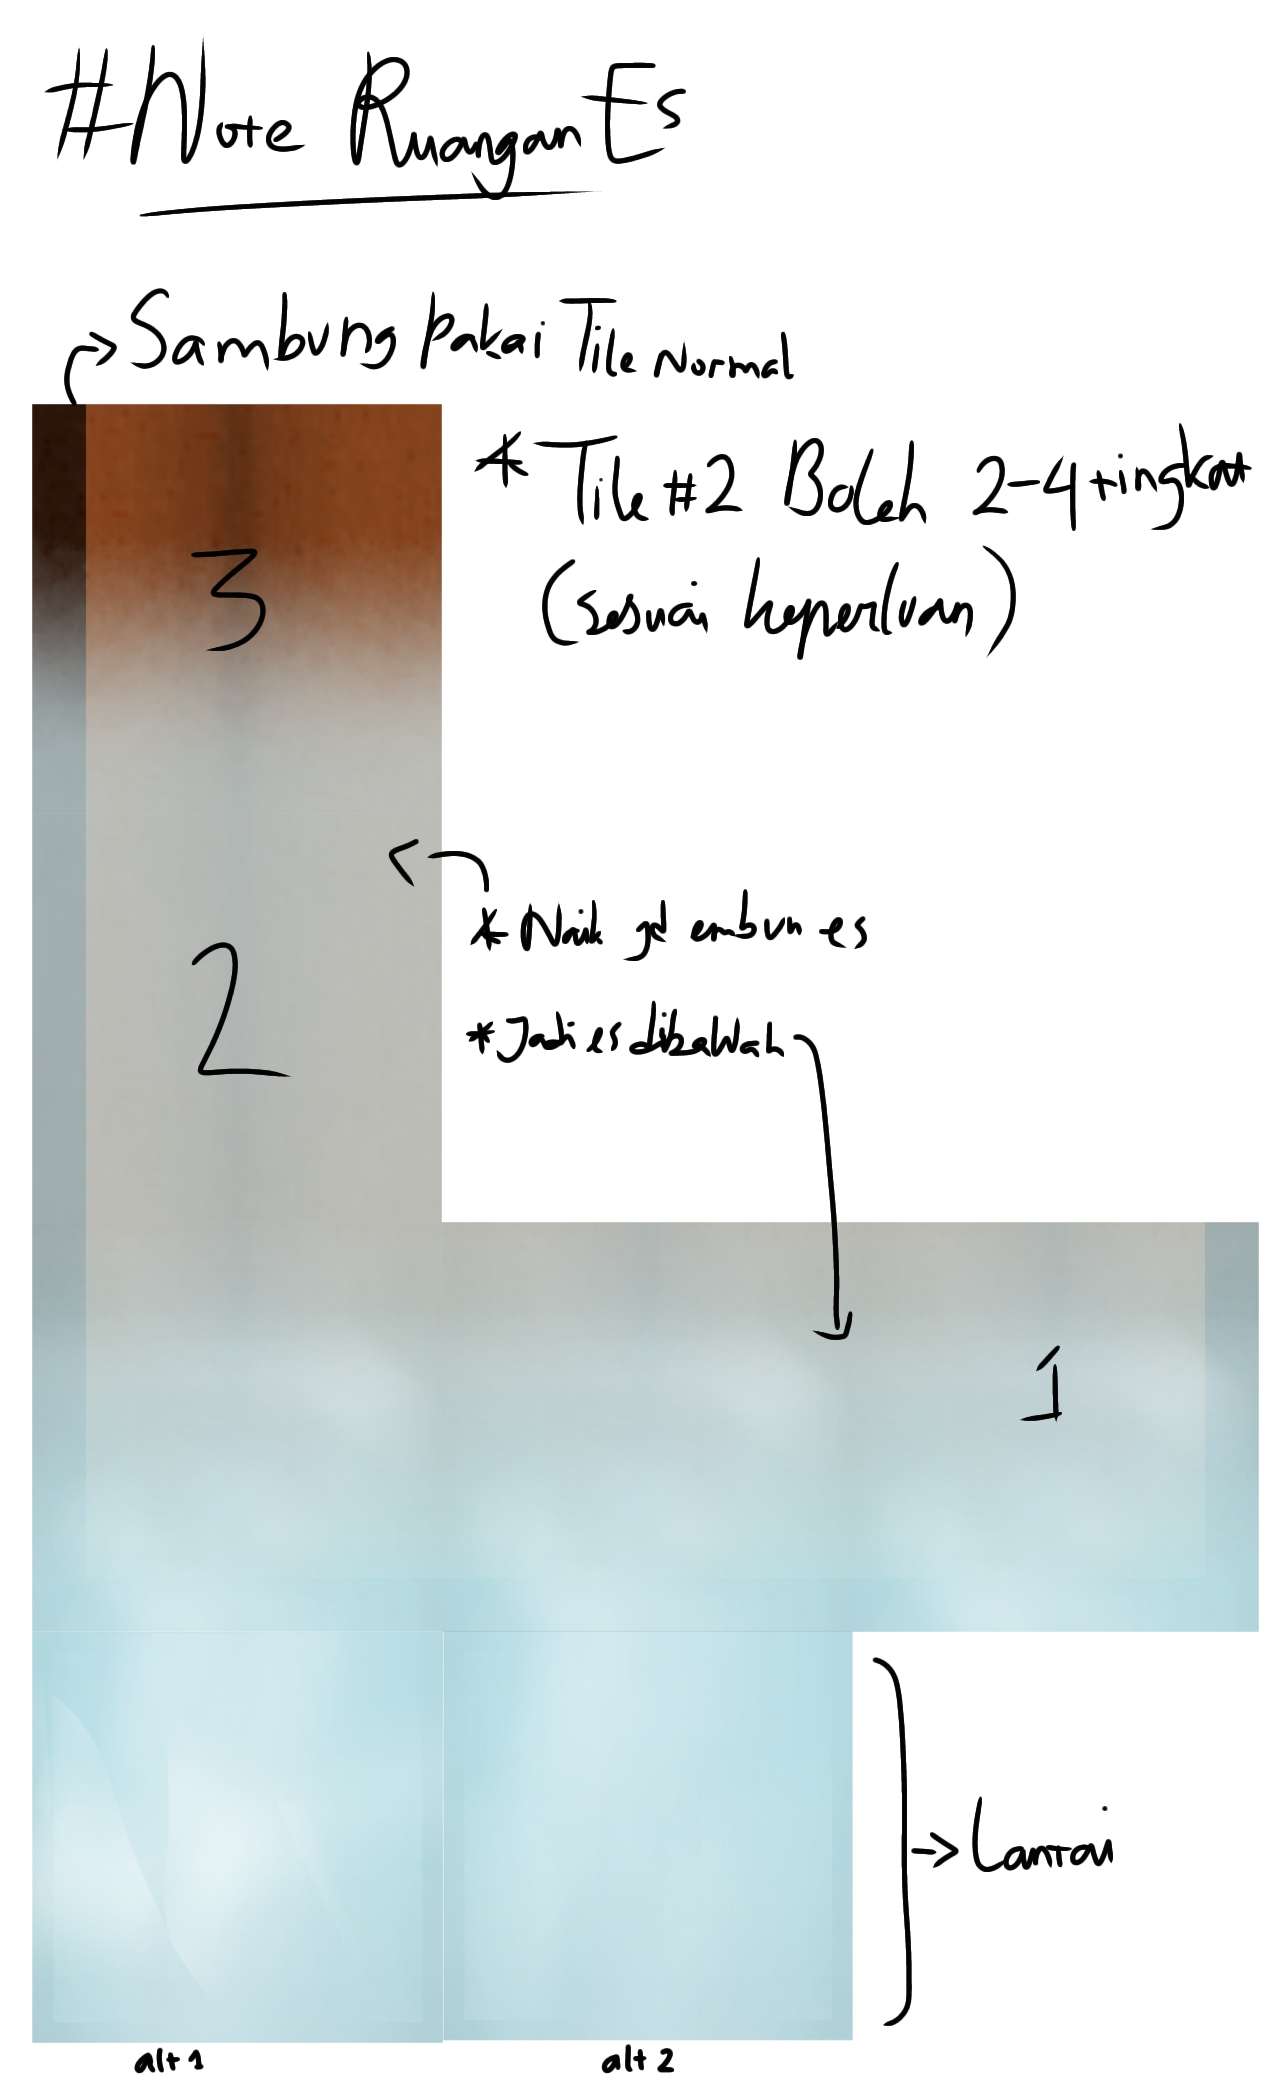 #Note Ruangan Es
→ Sambung pakai Tile Normal
* Tile #2 Boleh 2-4 tingkat
(sesuai keperluan)
3
* Naik jd embun es
2
* Jadi es dibawah
1
→ Lantai
alt 1
alt 2